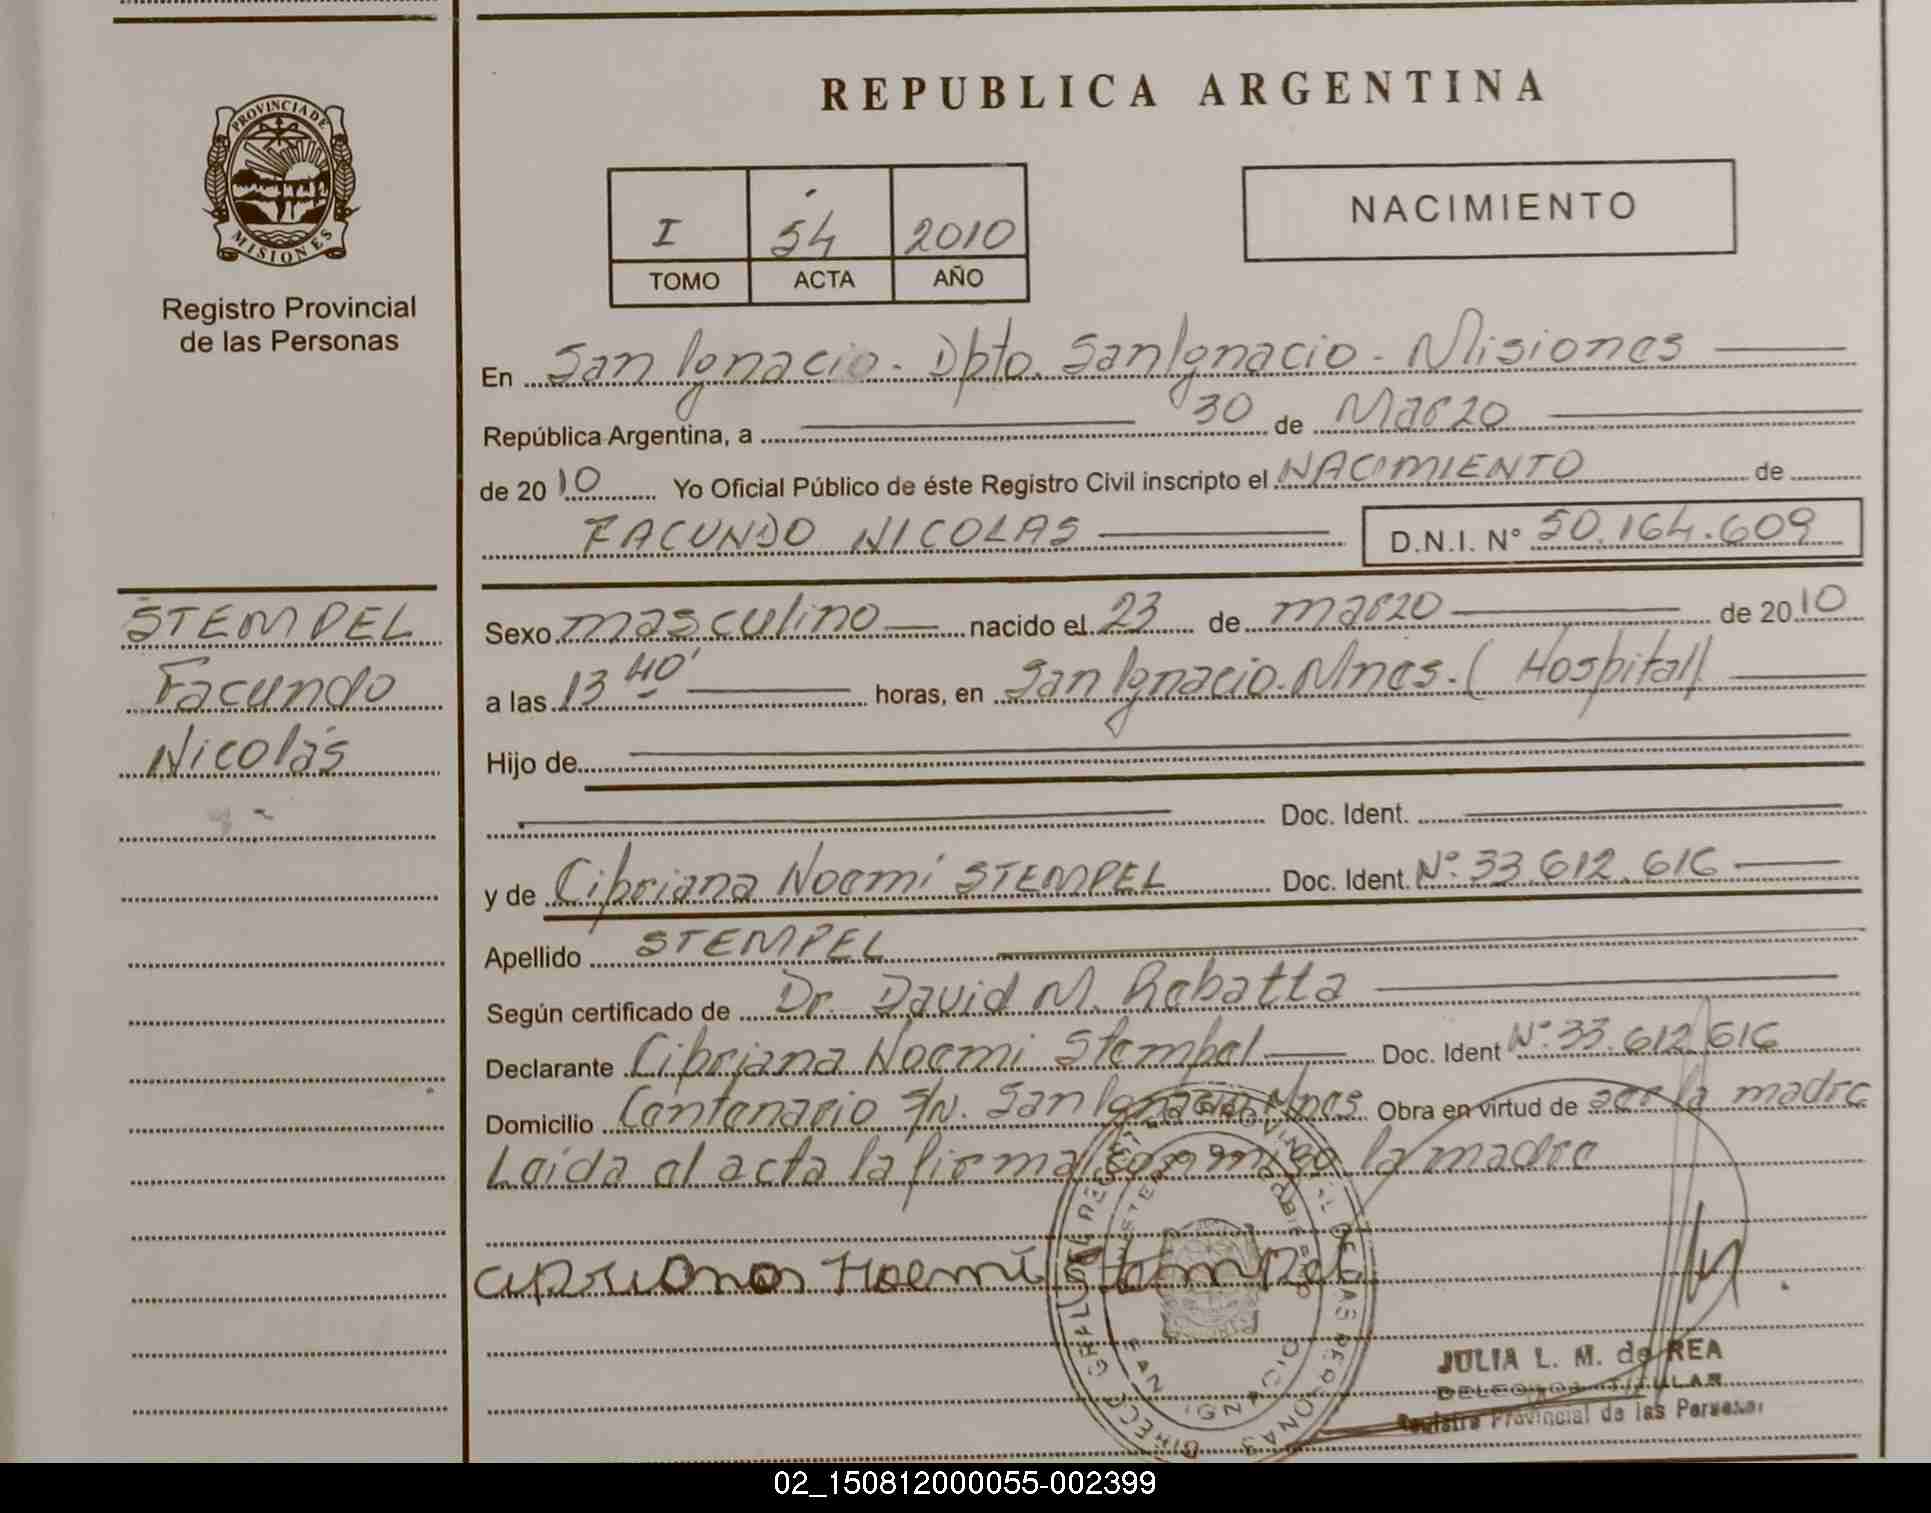 REPUBLICA ARGENTINA
PROVINCIA DE
MISIONES
Registro Provincial
de las Personas
NACIMIENTO
I 54 2010
TOMO ACTA AÑO
En San Ignacio - Dpto. San Ignacio - Misiones
República Argentina, a 30 de Marzo
de 2010 Yo Oficial Público de éste Registro Civil inscripto el NACIMIENTO de
FACUNDO NICOLAS D.N.I. N° 50.164.609
STEMPEL
Facundo
Nicolás
Sexo masculino nacido el 23 de marzo de 2010
a las 13 40' horas, en San Ignacio. Mnes. (Hospital)
Hijo de
Doc. Ident.
y de Cipriana Noemí STEMPEL Doc. Ident. N°: 33.612.616
Apellido STEMPEL
Según certificado de Dr. David M. Rebatta
Declarante Cipriana Noemi Stempel Doc. Ident N°: 33.612.616
Domicilio Centenario S/N. San Ignacio Mnes. Obra en virtud de ser la madre
Leida el acta la firma conmigo la madre
cipriana Noemí Stempel
SAN IGNACIO
JULIA L. M. de REA
DELEGADA TITULAR
Registro Provincial de las Personas
02_150812000055-002399